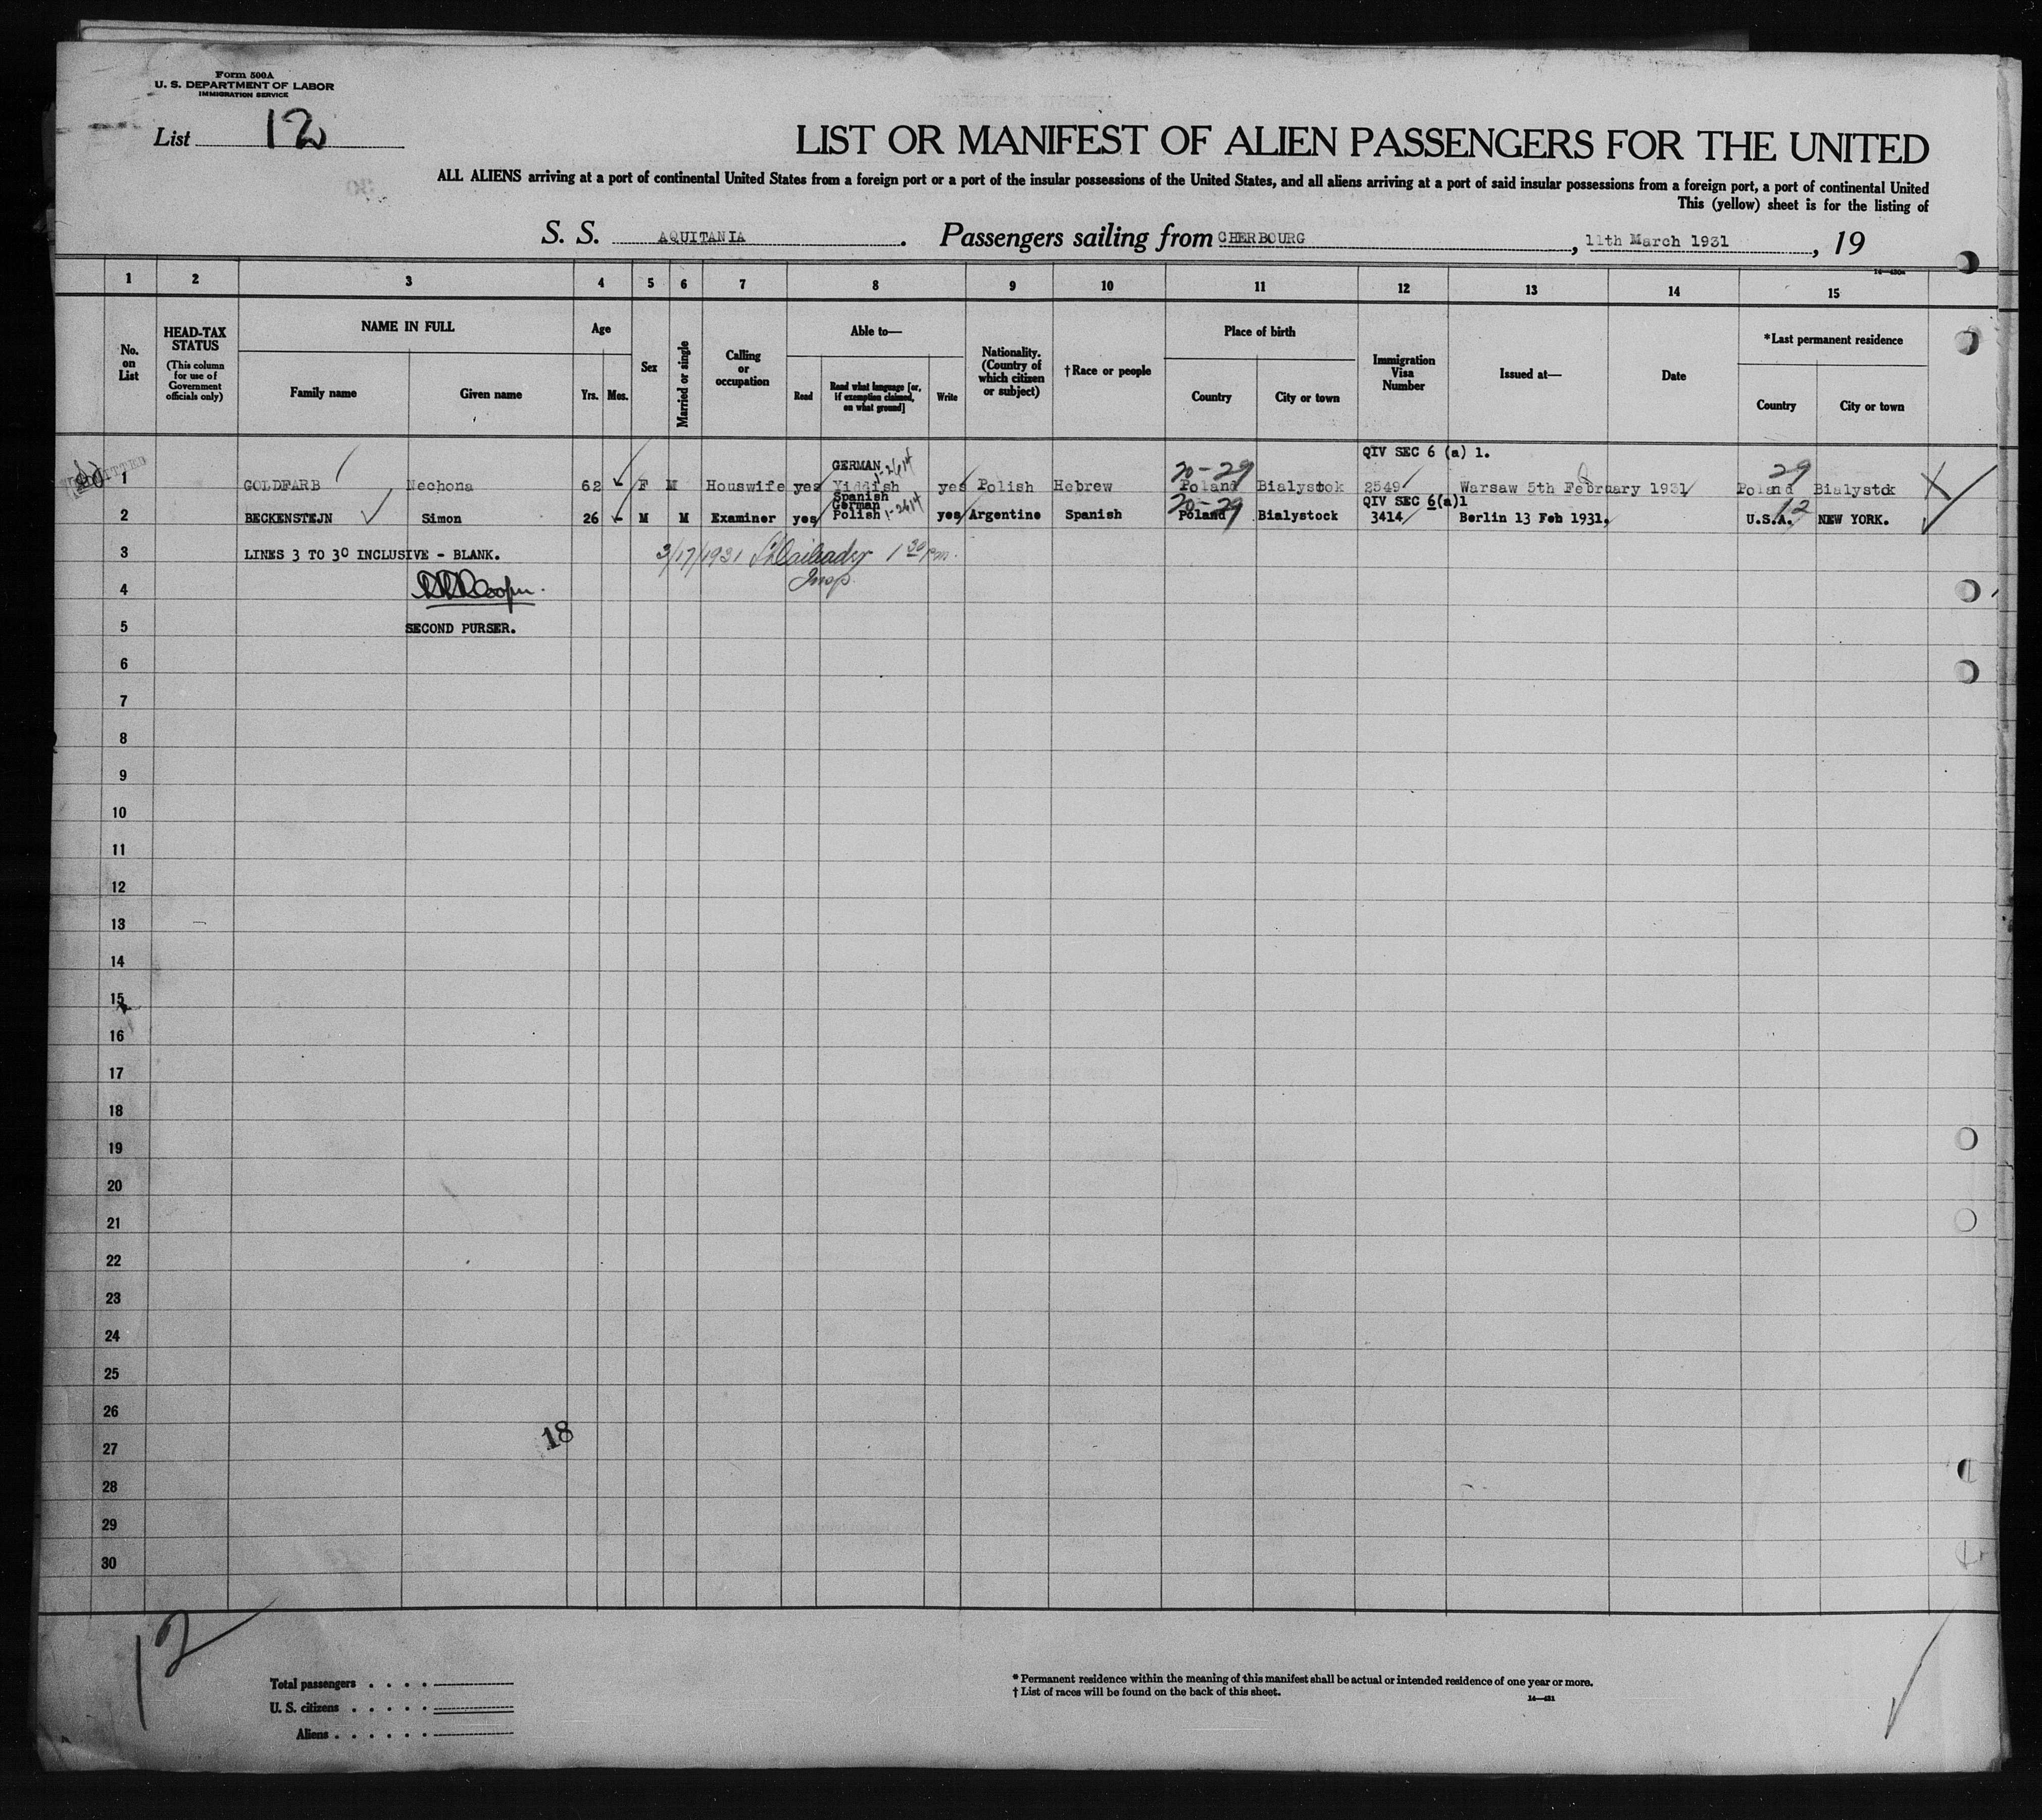 Form 500A
U. S. DEPARTMENT OF LABOR
IMMIGRATION SERVICE
List 12
LIST OR MANIFEST OF ALIEN PASSENGERS FOR THE UNITED
ALL ALIENS arriving at a port of continental United States from a foreign port or a port of the insular possessions of the United States, and all aliens arriving at a port of said insular possessions from a foreign port, a port of continental United
This (yellow) sheet is for the listing of
S. S. AQUITANIA. Passengers sailing from CHERBOURG, 11th March 1931, 19
1 2 3 4 5 6 7 8 9 10 11 12 13 14 15
No. on List
HEAD-TAX STATUS
(This column for use of Government officials only)
NAME IN FULL
Family name
Given name
Age
Yrs. Mos.
Sex
Married or single
Calling or occupation
Able to—
Read
Read what language [or, if exemption claimed, on what ground]
Write
Nationality. (Country of which citizen or subject)
†Race or people
Place of birth
Country
City or town
Immigration Visa Number
Issued at—
Date
*Last permanent residence
Country
City or town
GERMAN QIV SEC 6 (a) 1.
20-29 29
1 GOLDFARB Nechona 62 F M Houswife yes Yiddish yes Polish Hebrew Poland Bialystok 2549 Warsaw 5th February 1931 Poland Bialystok
Spanish QIV SEC 6(a)1
German 20-29 12
2 BECKENSTEJN Simon 26 - M M Examiner yes Polish yes Argentine Spanish Poland Bialystock 3414 Berlin 13 Feb 1931. U.S.A. NEW YORK.
3 LINES 3 TO 30 INCLUSIVE - BLANK. 3/17/1931 1 30 pm.
Insp
4
5 SECOND PURSER.
6
7
8
9
10
11
12
13
14
15
16
17
18
19
20
21
22
23
24
25
26
18
27
28
29
30
12
Total passengers . . . .
U. S. citizens . . . . .
Aliens . . . . . .
* Permanent residence within the meaning of this manifest shall be actual or intended residence of one year or more.
† List of races will be found on the back of this sheet.
14—431